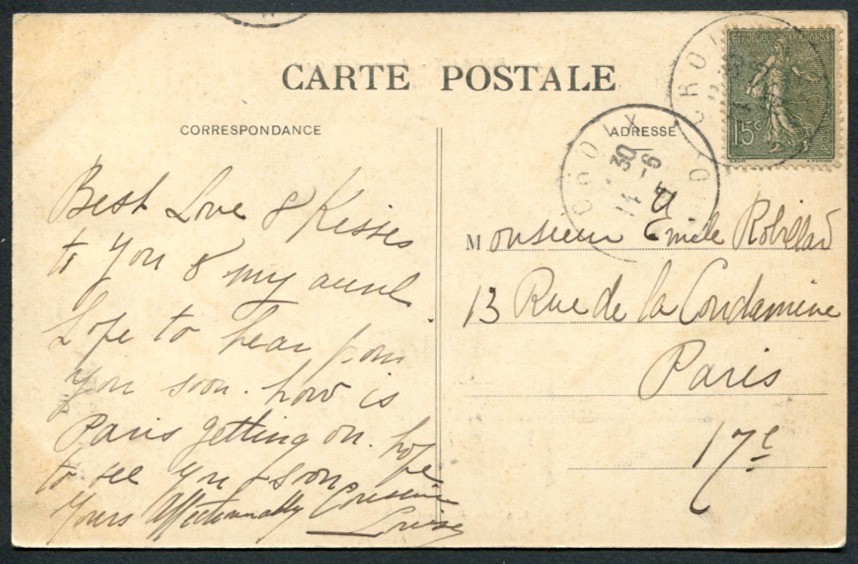 CARTE POSTALE
CORRESPONDANCE
ADRESSE
Best Love & Kisses
to you & my aunt
hope to hear from
you soon. how is
Paris getting on. hope
to see you soon
Yours Affectionately Cousine
Louise
Monsieur Emile Robillard
13 Rue de la Condamine
Paris
17e
15c
CROIX
30 -6
14
CROIX